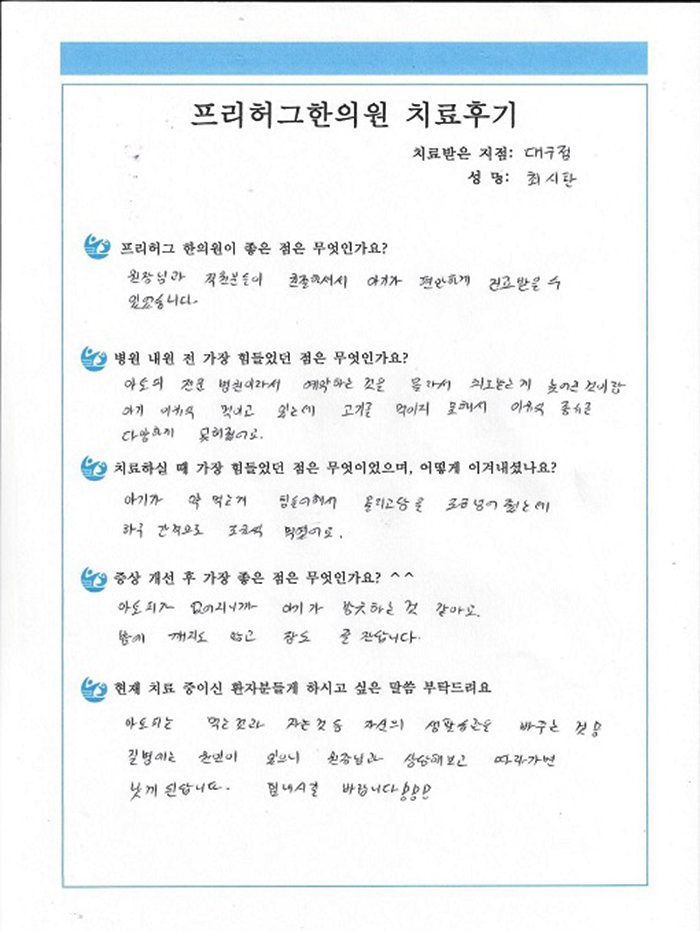 프리허그한의원 치료후기
치료받은 지점: 대구점
성 명: 최시탄
프리허그 한의원이 좋은 점은 무엇인가요?
원장님과 직원분들이 친절하셔서 아기가 편안하게 진료받을 수
있었습니다.
병원 내원 전 가장 힘들었던 점은 무엇인가요?
아토피 전문 병원이라서 예약하는 것을 몰라서 치료받는게 늦어진 것이랑
아기 이유식 먹이고 있는데 고기를 먹이지 못해서 이유식 종류를
다양하게 못해줬어요.
치료하실 때 가장 힘들었던 점은 무엇이었으며, 어떻게 이겨내셨나요?
아기가 약 먹는게 힘들어해서 올리고당을 조금넣어 줬는데
하루 간격으로 조금씩 먹였어요.
증상 개선 후 가장 좋은 점은 무엇인가요? ^^
아토피가 없어지니까 아기가 잘웃하는 것 같아요.
밤에 깨지도 않고 잠도 잘 잔답니다.
현재 치료 중이신 환자분들게 하시고 싶은 말씀 부탁드려요
아토피는 먹는것과 자는것등 자신의 생활습관을 바꾸는 것등
질병에는 원인이 있으니 원장님과 상담해보고 따라가면
낫게 된답니다. 힘내시길 바랍니다!!!